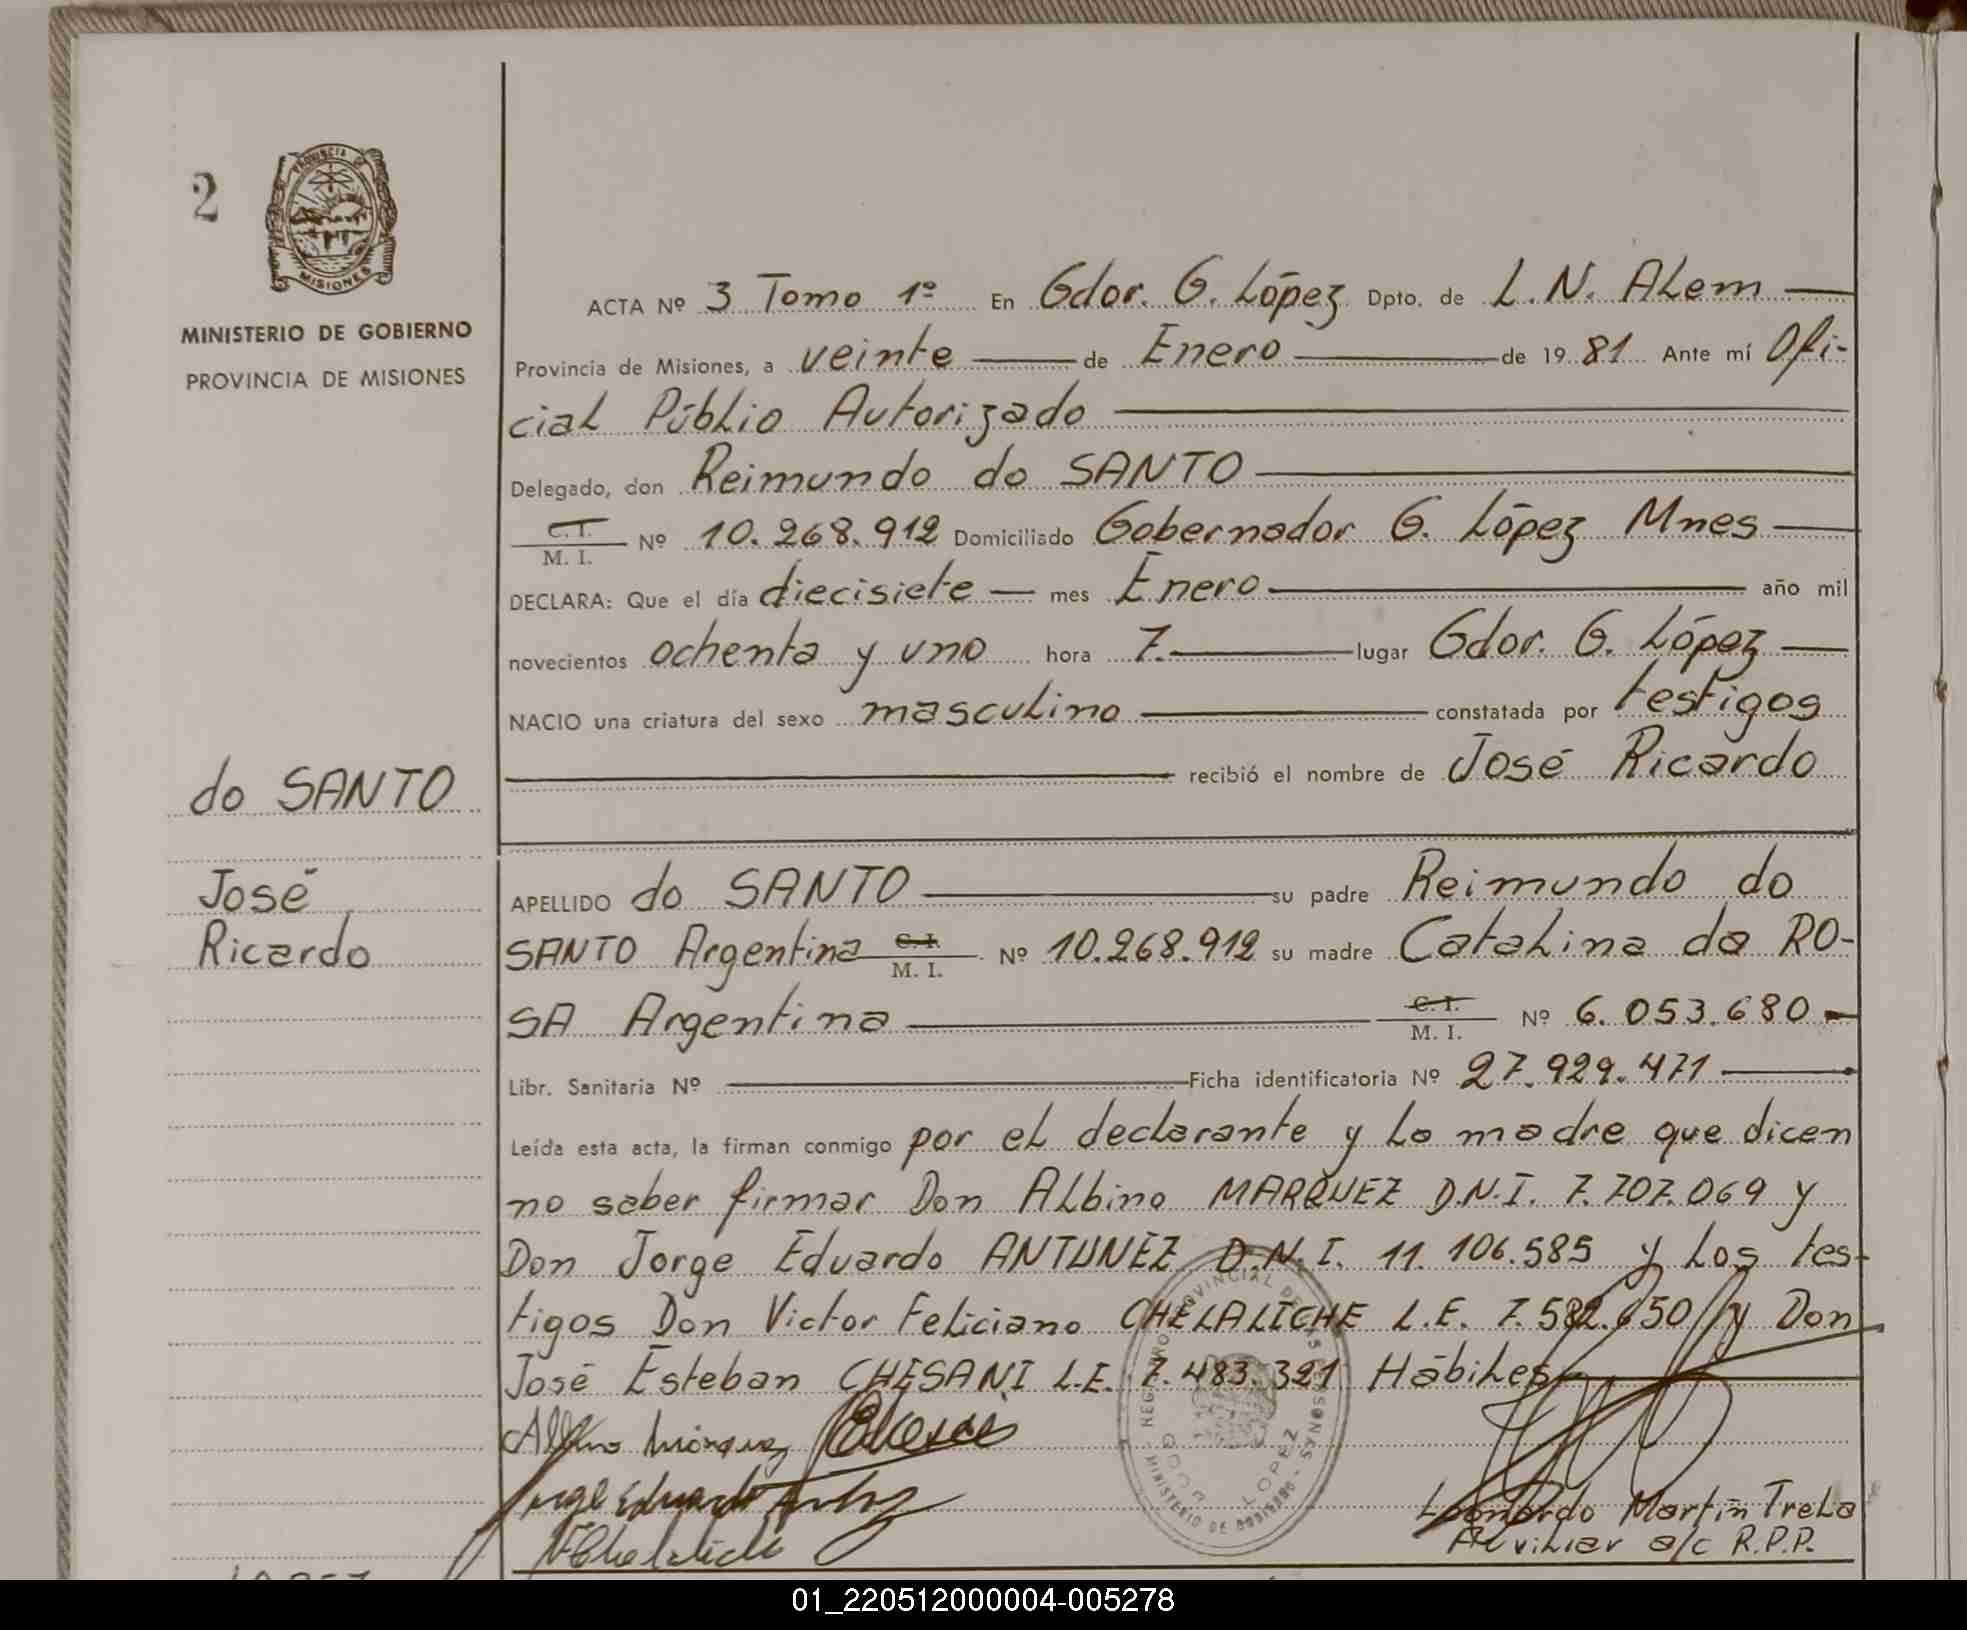 2
PROVINCIA DE
MISIONES
MINISTERIO DE GOBIERNO
PROVINCIA DE MISIONES
do SANTO
José
Ricardo
ACTA Nº 3 Tomo 1º En Gdor. G. López Dpto. de L. N. ALem
Provincia de Misiones, a veinte de Enero de 1981 Ante mí Ofi-
cial Públio Autorizado
Delegado, don Reimundo do SANTO
C.I.
M. I. Nº 10.268.912 Domiciliado Gobernador G. López Mnes
DECLARA: Que el día diecisiete mes Enero año mil
novecientos ochenta y uno hora 7. lugar Gdor. G. López
NACIO una criatura del sexo masculino constatada por testigos
recibió el nombre de José Ricardo
APELLIDO do SANTO su padre Reimundo do
SANTO Argentina C.I. M. I. Nº 10.268.912 su madre Catalina da RO-
SA Argentina C.I. M. I. Nº 6.053.680
Libr. Sanitaria Nº Ficha identificatoria Nº 27.929.471
Leída esta acta, la firman conmigo por el declarante y la madre que dicen
no saber firmar Don Albino MARQUEZ D.N.I. 7.707.069 y
Don Jorge Eduardo ANTUNEZ D.N.I. 11.106.585 y los tes-
tigos Don Victor Feliciano CHELALICHE L.E. 7.582.650 y Don
José Esteban CHESANI L.E. 7.483.321 Hábiles
REGISTRO PROVINCIAL DE LAS PERSONAS
GDOR LOPEZ
MINISTERIO DE GOBIERNO
Leonardo Martín Trela
Auxiliar a/c R.P.P.
01_220512000004-005278